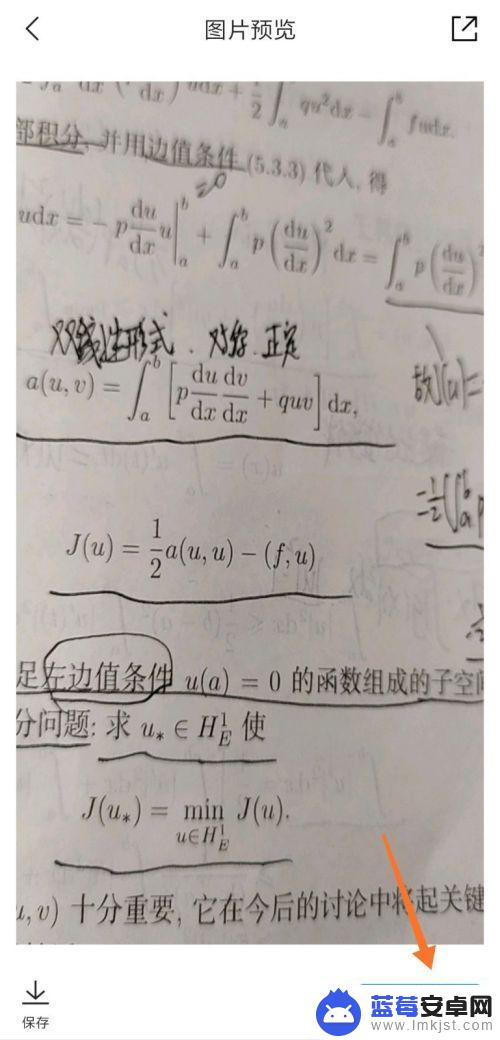 图片预览
部积分, 并用边值条件 (5.3.3) 代人, 得
=0
udx = - p du/dx u |_a^b + ∫_a^b p (du/dx)^2 dx = ∫_a^b p (du/dx)^2
双线性形式. 对称. 正定
a(u, v) = ∫_a^b [p du/dx dv/dx + quv] dx,
故J(u)=
J(u) = 1/2 a(u, u) - (f, u)
足左边值条件 u(a) = 0 的函数组成的子空间
分问题: 求 u_* ∈ H_E^1 使
J(u_*) = min_{u∈H_E^1} J(u).
u, v) 十分重要, 它在今后的讨论中将起关键
保存
蓝莓安卓网
www.lmkjst.com